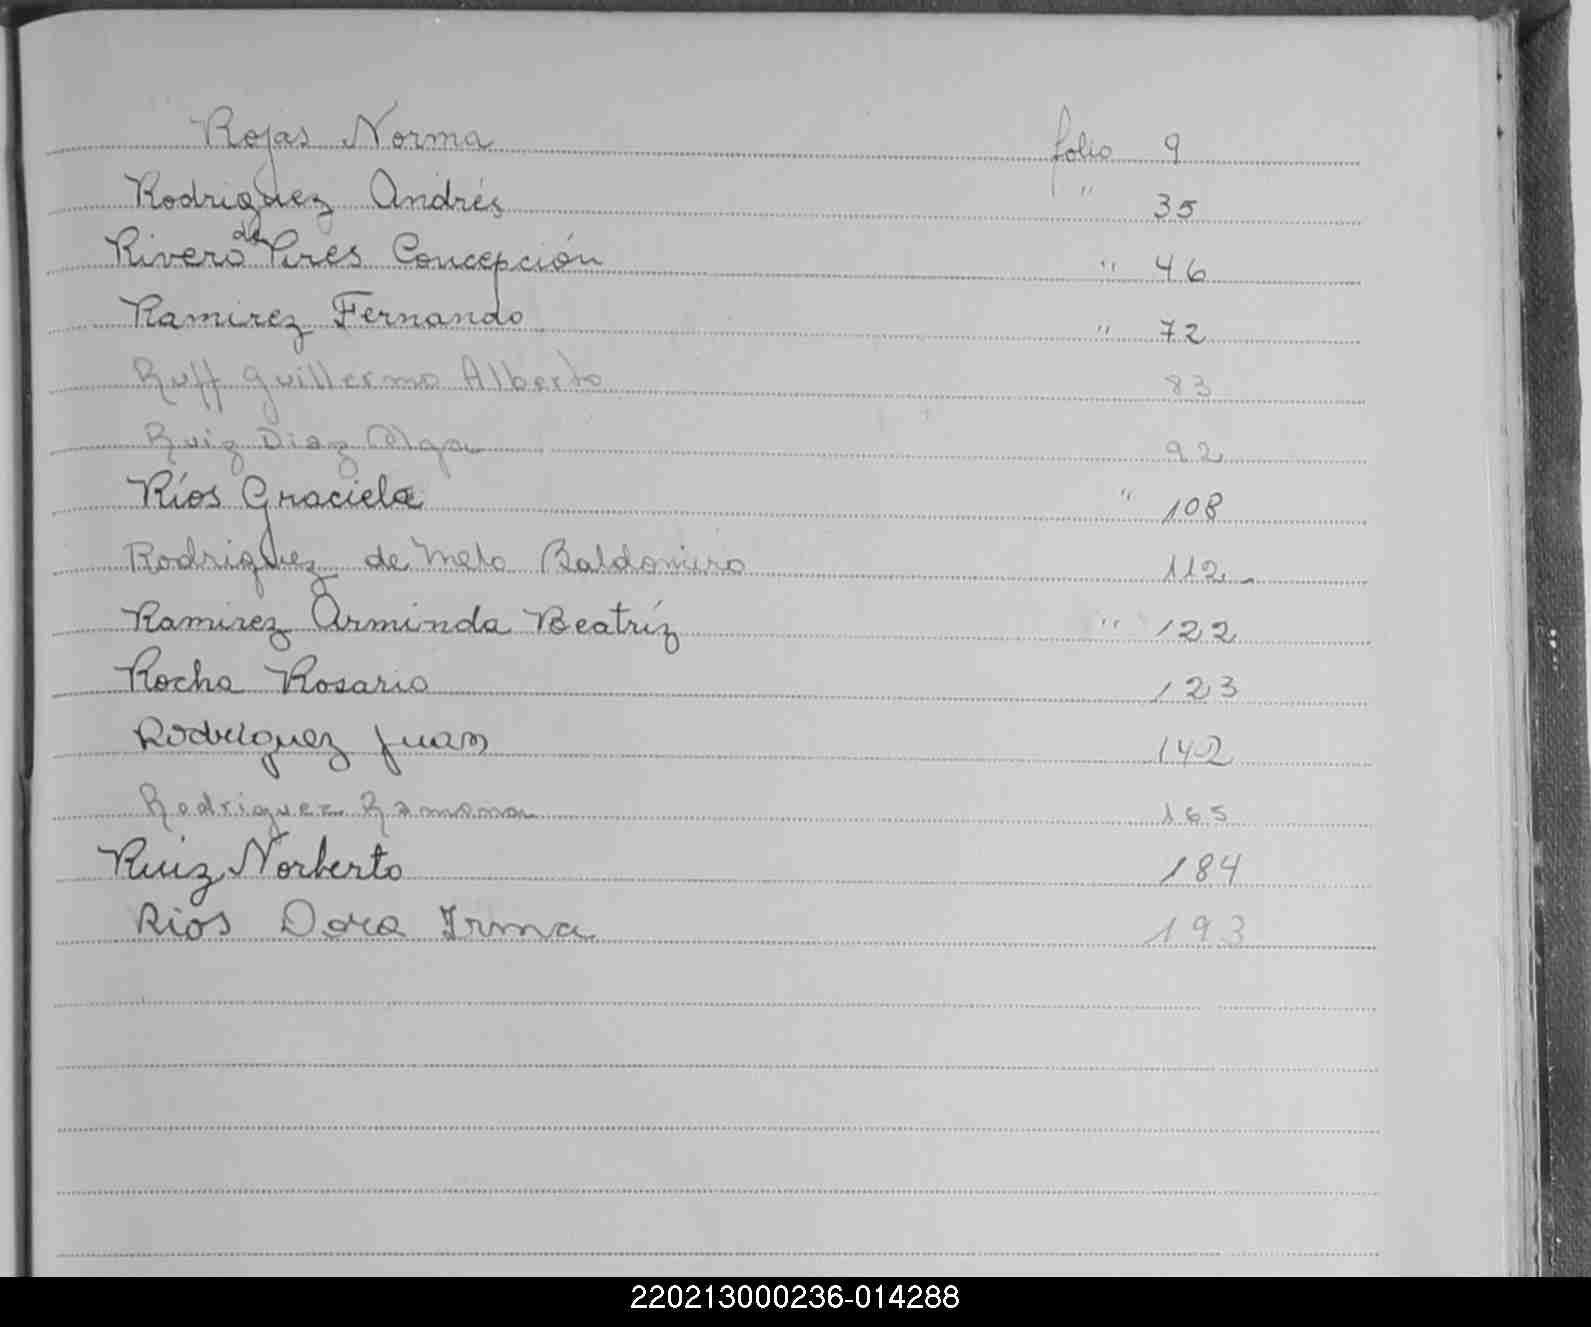 Rojas Norma folio 9
Rodriguez Andrés " 35
Rivero de Pires Concepción " 46
Ramirez Fernando " 72
Ruff Guillermo Alberto 83
Ruiz Diaz Olga 92
Ríos Graciela " 108
Rodriguez de Melo Baldomiro 112
Ramirez Arminda Beatríz " 122
Rocha Rosario 123
Rodriguez Juan 142
Rodriguez Ramona 165
Ruiz Norberto 184
Rios Dora Irma 193
220213000236-014288